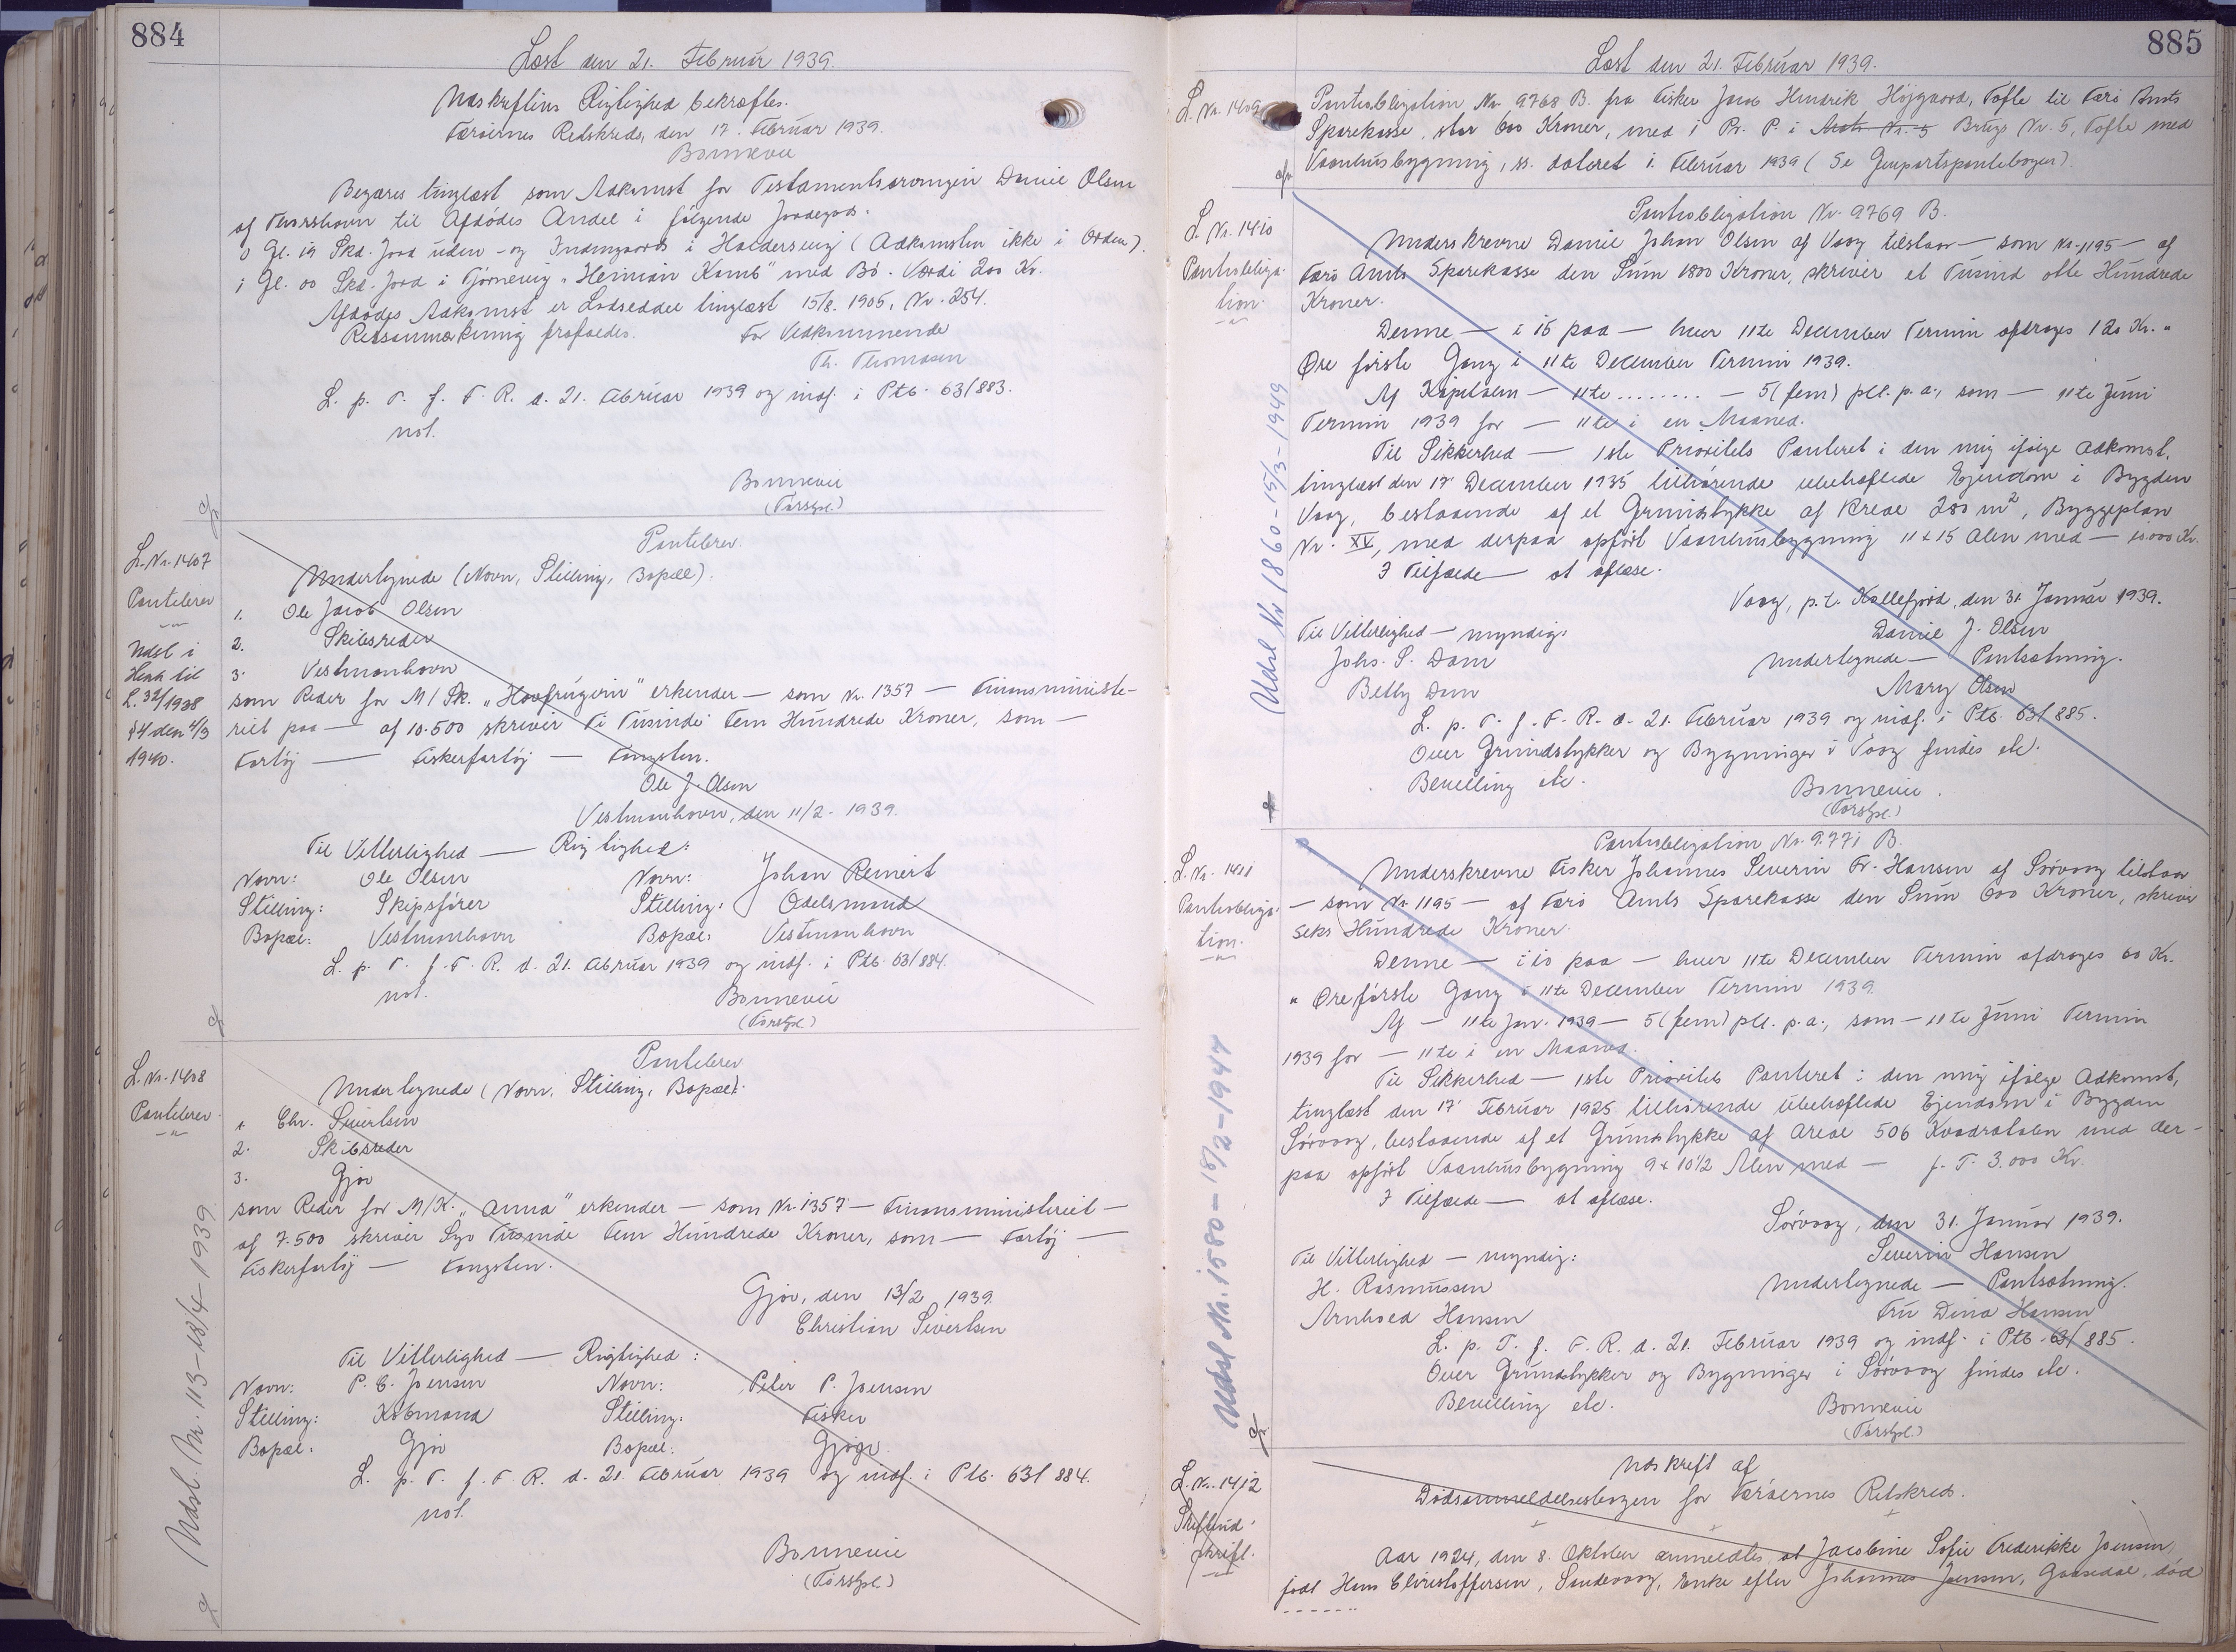 884
Læst den 21. Februar 1939.
Udskriftens Rigtighed bekræftes.
Færøernes Retskreds, den 17. Februar 1939.
Bonnevie
Begæres tinglæst som Adkomst for Testamentsarvingen Daniel Olsen
af Thorshavn til Afdødes Andel i følgende Jordegods:
0 Gl. 19 Skd. Jord uden- og Indengaards i Haldersvig (Adkomsten ikke i Orden).
1 Gl. 00 Skd. Jord i Tjørnevig "Heiman Kamb" med Bö. Værdi 200 Kr.
Afdødes Adkomst er Lodseddel tinglæst 15/8. 1905, Nr. 254.
Retsanmærkning frafaldes. For Vedkommende
Th. Thomsen
L. p. T. f. F. R. d. 21. Februar 1939 og indf. i Ptb. 63/883.
not.
Bonnevie
(Forstpl.)
L. Nr. 1407
Pantebrev
Udsl i
Henh til
L. 32/1938
§4 den 4/3
1940.
Pantebrev.
Undertegnede (Navn, Stilling, Bopæl).
1. Ole Jacob Olsen
2. Skibsreder
3. Vestmanhavn
som Reder for M/Sk. "Havfrugvin" erkender — som Nr. 1357 — Finansministe-
riet paa — af 10.500 skriver Ti Tusinde Fem Hundrede Kroner, som —
Fartøj — Fiskerfartøj — Fangsten.
Ole J. Olsen
Vestmanhavn, den 11/2 - 1939.
Til Vitterlighed — Rigtighed:
Navn: Ole Olsen Navn: Johan Reinert
Stilling: Skipsfører Stilling: Odelsmand
Bopæl: Vestmanhavn Bopæl: Vestmanhavn
L. p. T. f. F. R. d. 21. Februar 1939 og indf. i Ptb. 63/884.
not. Bonnevie
(Forstpl.)
L. Nr. 1408
Pantebrev
Udsl. Nr. 113-18/4-1939.
Pantebrev
Undertegnede (Navn, Stilling, Bopæl):
1. Chr. Sivertsen
2. Skibsreder
3. Gjov
som Reder for M/K. "Anna" erkender — som Nr. 1357 — Finansministeriet —
af 7.500 skriver Syv Tusinde Fem Hundrede Kroner, som — Fartøj —
Fiskerfartøj — Fangsten.
Gjov, den 13/2 1939.
Christian Sivertsen
Til Vitterlighed — Rigtighed:
Navn: P. C. Joensen Navn: Peter P. Joensen
Stilling: Købmand Stilling: Fisker
Bopæl: Gjov Bopæl: Gjogv.
L. p. T. f. F. R. d. 21. Februar 1939 og indf. i Ptb. 63/884.
not.
Bonnevie
(Forstpl.)
885
Læst den 21. Februar 1939.
L. Nr. 1409
Pantobligation Nr. 9768 B. fra Fisker Jacob Hendrik Højgaard, Tofte til Færø Amts
Sparekasse, stor 600 Kroner, med 1 Pr. P. i Matr. Nr. 5 Brugs Nr. 5, Tofte med
Vaanhusbygning, ss. dateret 1. Februar 1939 (Se Genpartspantebogen).
L. Nr. 1410
Pantobliga-
tion.
Udsl Nr 1860-15/3-1949
Pantobligation Nr. 9769 B.
Underskrevne Daniel Johan Olsen af Vaag tilstaar — som Nr. 1195 — af
Færø Amts Sparekasse den Sum 1800 Kroner, skriver et Tusind otte Hundrede
Kroner.
Denne — i 15 paa — hver 11te December Termin afdrages 120 Kr. "
Øre første Gang i 11te December Termin 1939.
Af Kapitalen — 11te ........ — 5 (fem) pCt. p. a., som — 11te Juni
Termin 1939 for — 11te i en Maaned.
Til Sikkerhed — 1ste Prioritets Panteret i den mig ifølge Adkomst,
tinglæst den 17 December 1935 tilhørende ubehæftede Ejendom i Bygden
Vaag, bestaaende af et Grundstykke af Areal 280 m2, Byggeplan
Nr. XV, med derpaa opført Vaanhusbygning 11 x 15 Alen med — 10.000 Kr.
I Tilfælde — at aflæse.
Vaag, p.t. Kollefjord, den 31. Januar 1939.
Til Vitterlighed — myndig: Daniel J. Olsen
Johs. P. Dam Undertegnede — Pantsætning.
Betty Dam Mary Olsen
L. p. T. f. F. R. d. 21. Februar 1939 og indf. i Ptb. 63/885.
Over Grundstykker og Bygninger i Vaag findes etc.
Bevilling etc. Bonnevie.
(Forstpl.)
L. Nr. 1411
Pantobliga-
tion.
Udsl Nr. 1580-18/2-1947
Pantobligation Nr. 9.771 B.
Underskrevne Fisker Johannes Severin Fr. Hansen af Sørvaag tilstaar
— som Nr 1195 — af Færø Amts Sparekasse den Sum 600 Kroner, skriver
seks Hundrede Kroner.
Denne — i 10 paa — hver 11te December Termin afdrages 60 Kr.
" Øre første Gang i 11te December Termin 1939.
Af — 11te Jan. 1939 — 5 (fem) pCt. p. a., som — 11te Juni Termin
1939 for — 11te i en Maaned.
Til Sikkerhed — 1ste Prioritets Panteret i den mig ifølge Adkomst,
tinglæst den 17 Februar 1925 tilhørende ubehæftede Ejendom i Bygden
Sørvaag, bestaaende af et Grundstykke af Areal 506 Kvadratalen med der-
paa opført Vaanhusbygning 9 x 10 1/2 Alen med — f. T. 3.000 Kr.
I Tilfælde — at aflæse.
Sørvaag, den 31. Januar 1939.
Til Vitterlighed — myndig: Severin Hansen
H. Rasmussen Undertegnede — Pantsætning.
Arnhold Hansen Fru Dina Hansen
L. p. T. f. F. R. d. 21. Februar 1939 og indf. i Ptb 63/885.
Over Grundstykker og Bygninger i Sørvaag findes etc.
Bevilling etc. Bonnevie
(Forstpl.)
L. Nr. 1412
Skifteud-
skrift.
Udskrift af
Dødsanmeldelsesbogen for Færøernes Retskreds.
Aar 1924, den 8. Oktober anmeldtes, at Jacobine Sofie Frederikke Joensen,
født Hans Christoffersen, Sandevaag, Enke efter Johannes Joensen, Gaasedal, død